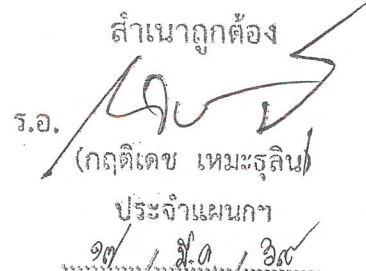 สำเนาถูกต้อง
ร.อ.
(กฤติเดช เหมะธุลิน)
ประจำแผนกฯ
๑๗ / มี.ค. / ๖๙